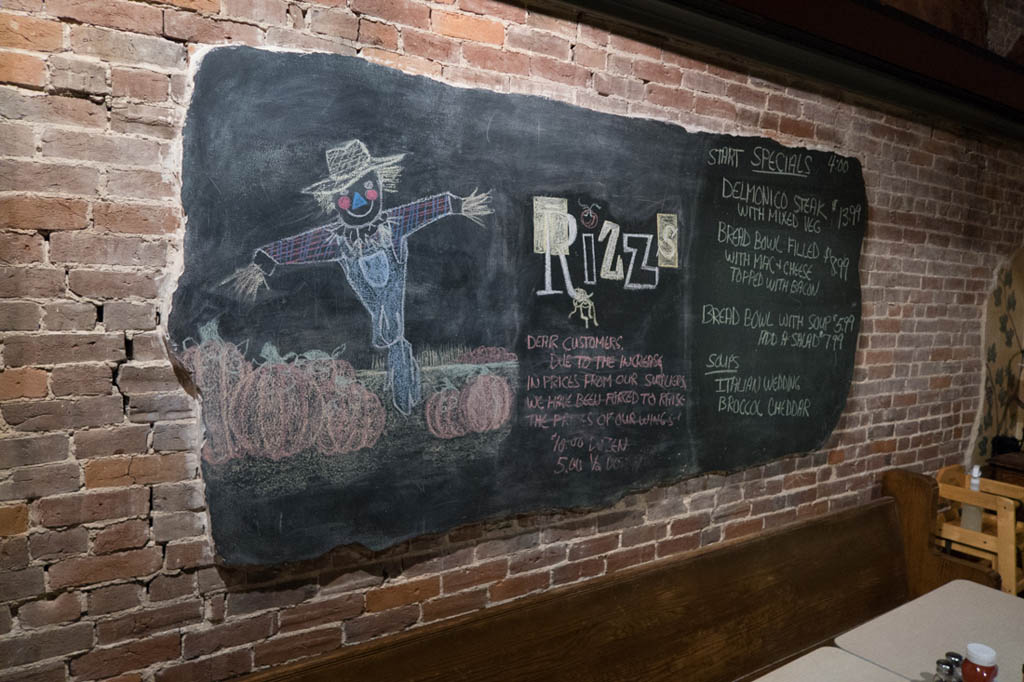 Rizz's
DEAR CUSTOMERS,
DUE TO THE INCREASE
IN PRICES FROM OUR SUPPLIERS
WE HAVE BEEN FORCED TO RAISE
THE PRICES OF OUR WINGS
10.00 DOZEN
5.00 ½
START SPECIALS 4:00
DELMONICO STEAK $13.99
WITH MIXED VEG
BREAD BOWL FILLED $8.99
WITH MAC + CHEESE
TOPPED WITH BACON
BREAD BOWL WITH SOUP $5.99
ADD A SALAD $7.99
SOUPS
ITALIAN WEDDING
BROCCOL CHEDDAR